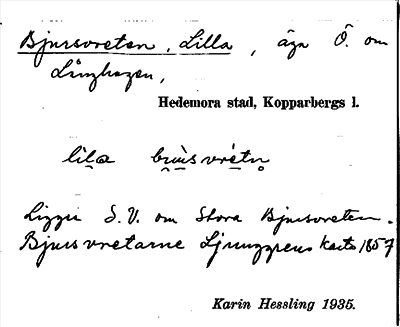 Bjursvreten, Lilla, äga Ö. om
Långhagen,
Hedemora stad, Kopparbergs l.
lila bju̇̀svrétn̥
Ligger S.V. om Stora Bjursvreten.
Bjursvretarne Ljunggrens karta 1857
Karin Hessling 1935.